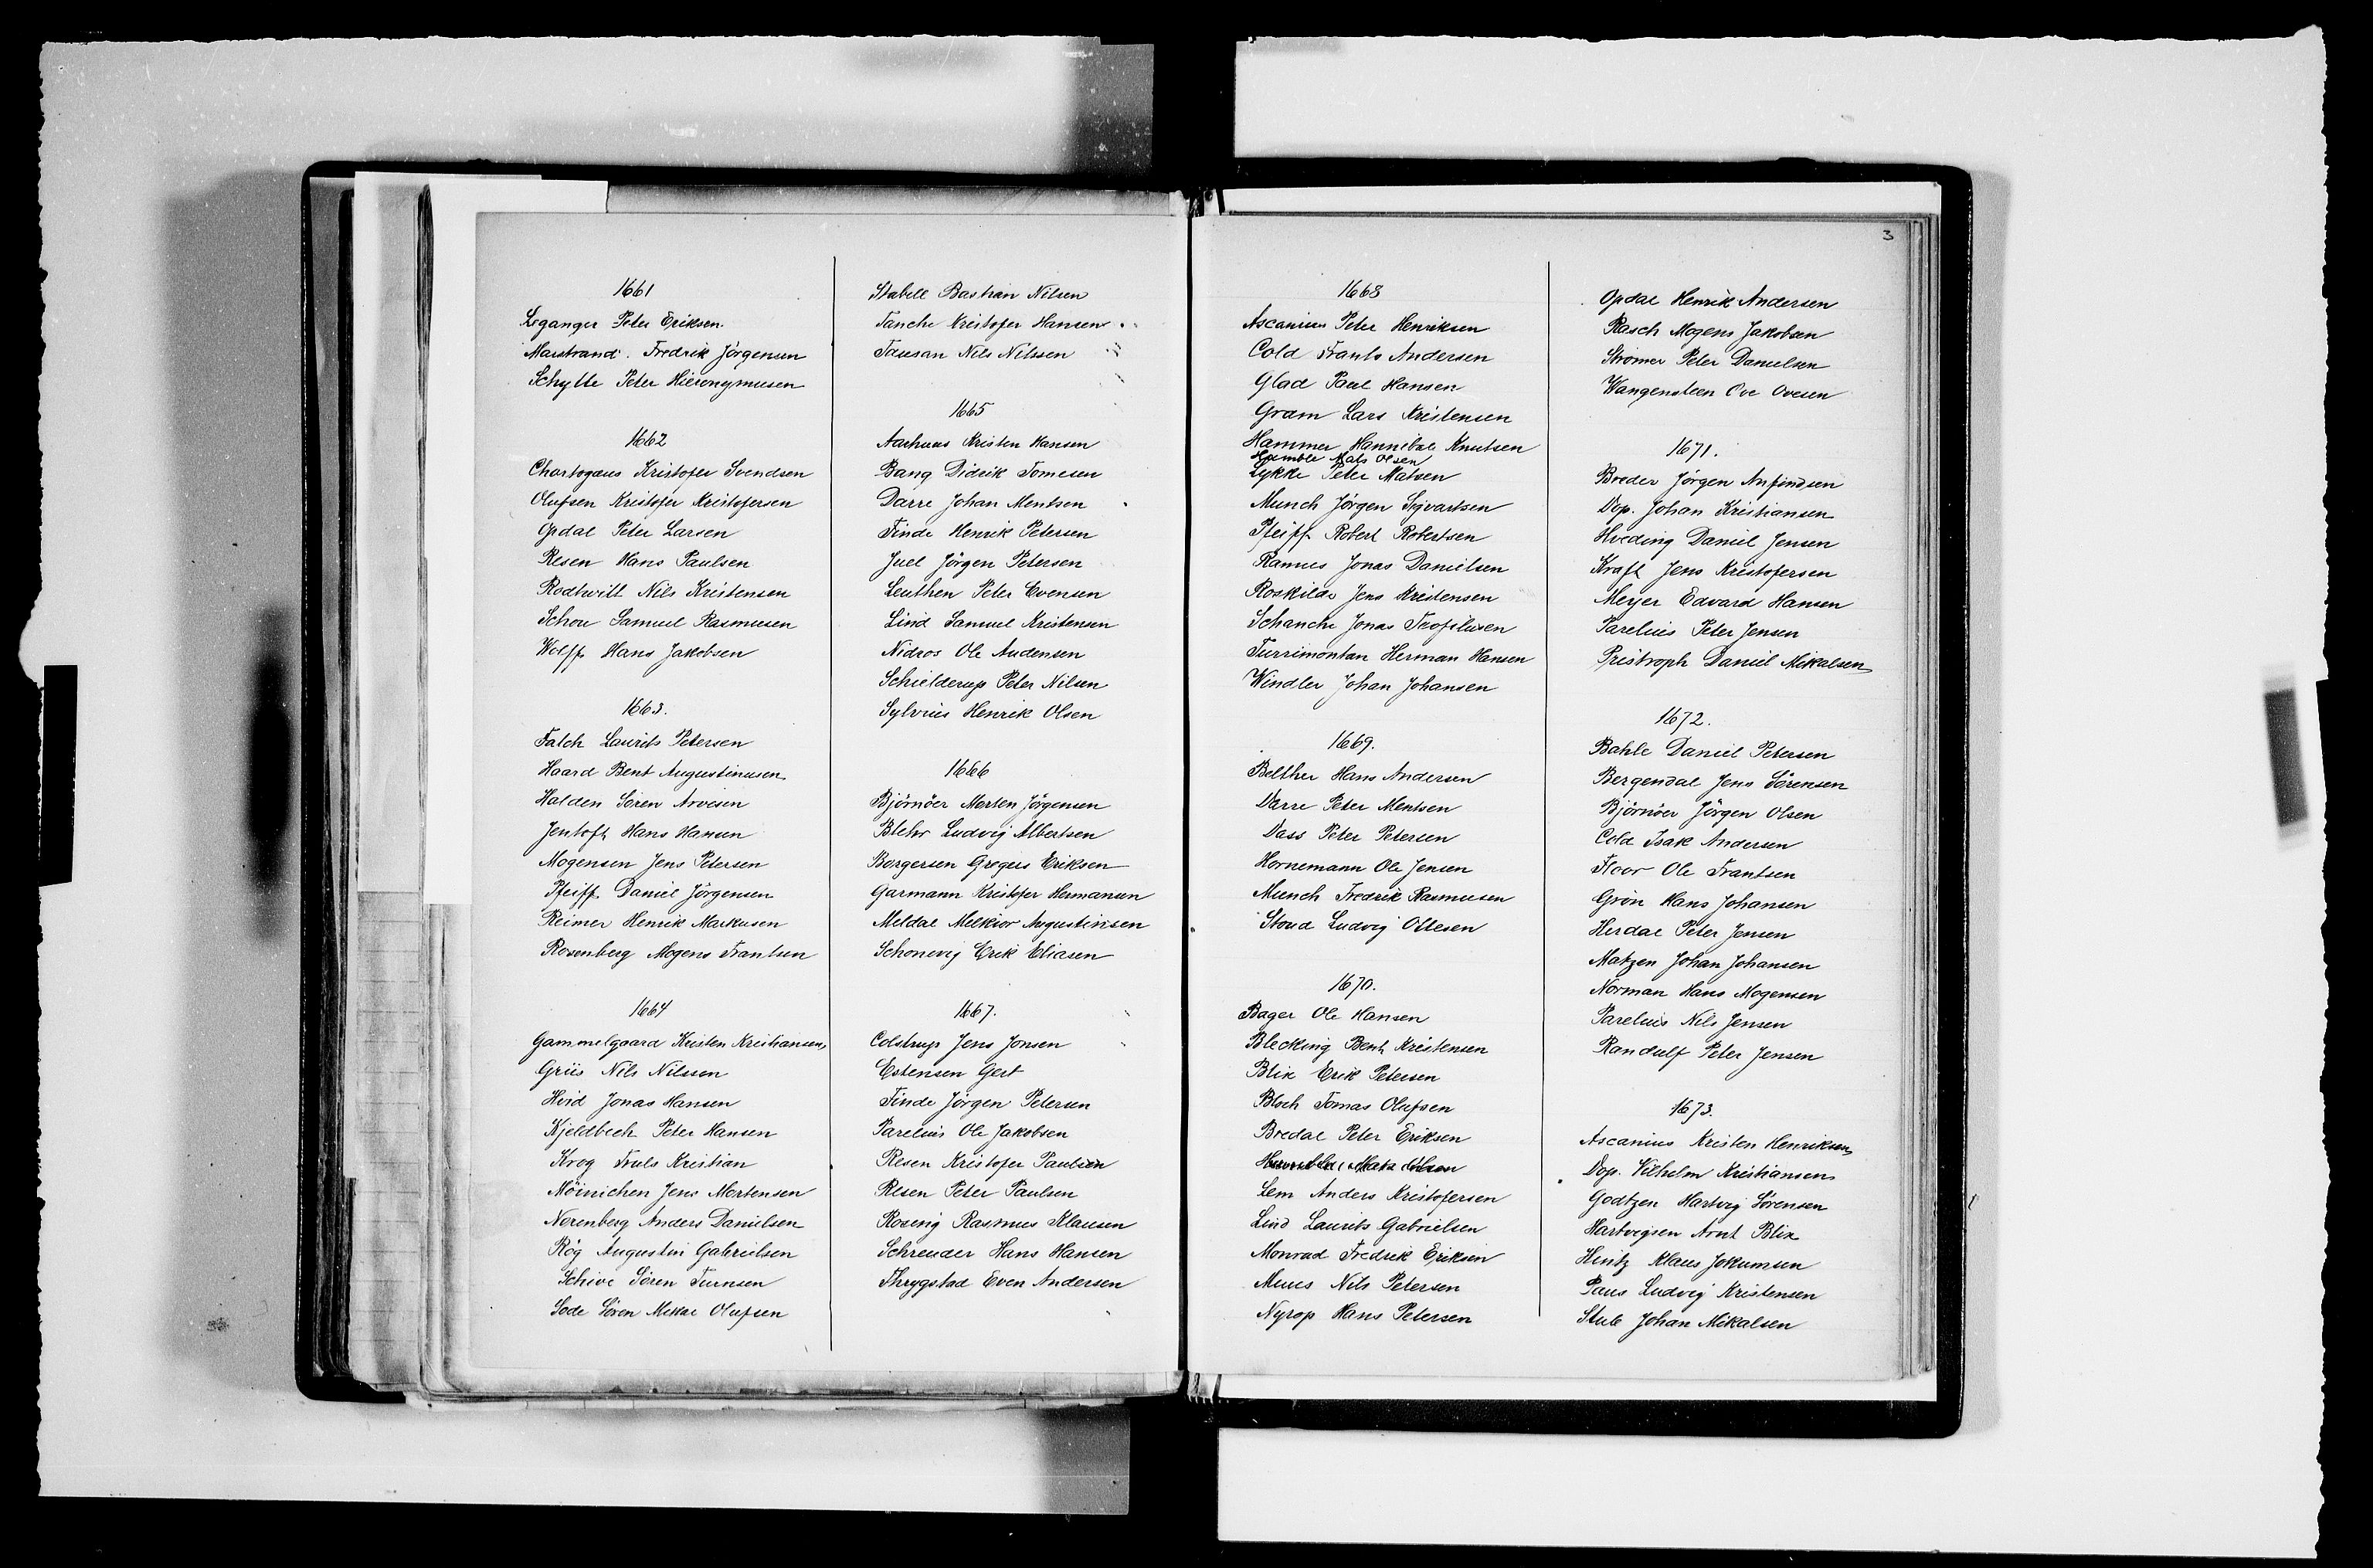 1661
Leganger Peter Eriksen.
Marstrand. Fredrik Jörgensen
Schytte Peter Hieronymusen
1662
Chartogæus Kristofer Svendsen
Olufsen Kristofer Kristofersen
Opdal Peter Larsen
Resen Hans Paulsen
Rodtwitt Nils Kristensen
Schou Samuel Rasmusen
Wolff Hans Jakobsen
1663.
Falch Laurits Petersen
Haard Bent Augustinusen
Halden Sören Arvesen
Jentoft Hans Hansen
Mogensen Jens Petersen
Pfeiff Daniel Jörgensen
Reimer Henrik Markusen
Rosenberg Mogens Frantsen
1664
Gammelgaard Kristen Kristiansen
Griis Nils Nilssen
Hvid Jonas Hansen
Kjeldbech Peter Hansen
Krog Truls Kristian
Möinichen Jens Mortensen
Norenberg Anders Danielsen
Rög Augustin Gabrielsen
Schive Sören Turnsen
Sode Sören Mikal Olufsen
Stabell Bastian Nilsen
Tanche Kristofer Hansen
Tausan Nils Nilssen
1665
Aarhuus Kristen Hansen
Bang Didrik Tomesen
Darre Johan Mentsen
Finde Henrik Petersen
Juel Jörgen Petersen
Leuthen Peter Evensen
Lind Samuel Kristensen
Nidros Ole Audensen
Schielderup Peter Nilsen
Sylvius Henrik Olsen
1666
Björnöer Morten Jörgensen
Blehr Ludvig Albertsen
Borgersen Gregers Eriksen
Garmann Kristofer Hermansen
Meldal Melkior Augustinsen
Schonevig Erik Eliasen
1667.
Colstrup Jens Jonsen
Estensen Gert
Finde Jörgen Petersen
Parelius Ole Jakobsen
Resen Kristofer Paulsen
Resen Peter Paulsen
Rosing Rasmus Klausen
Schreuder Hans Hansen
Thrygstad Even Andersen
3
1668
Ascanius Peter Henriksen
Cold Frants Andersen
Glad Paul Hansen
Gram Lars Kristensen
Hammer Hannibal Knutsen
Humble Mats Olsen
Lykke Peter Matsen
Munch Jörgen Sigvartsen
Pfeiff Robert Robertsen
Ramus Jonas Danielsen
Roskilde Jens Kristensen
Schanche Jonas Teofilusen
Turrimontan Herman Hansen
Windler Johan Johansen
1669.
Belther Hans Andersen
Darre Peter Mentsen
Dass Peter Petersen
Hornemann Ole Jensen
Munch Fredrik Rasmusen
Stoud Ludvig Ottesen
1670.
Bager Ole Hansen
Blecking Bent Kristensen
Blix Erik Petersen
Bloch Tomas Olufsen
Bredal Peter Eriksen
Humble Mats Olsen
Lem Anders Kristofersen
Lind Laurits Gabrielsen
Monrad Fredrik Eriksen
Muus Nils Petersen
Nyrop Hans Petersen
Opdal Henrik Andersen
Rasch Mogens Jakobsen
Strömer Peter Danielsen
Wangensteen Ove Ovesen
1671.
Breder Jörgen Anfindsen
Dop. Johan Kristiansen
Hveding Daniel Jensen
Kraft Jens Kristofersen
Meyer Edvard Hansen
Parelius Peter Jensen
Pristroph Daniel Mikalsen
1672.
Bahle Daniel Petersen
Bergendal Jens Sörensen
Björnöer Jörgen Olsen
Cold Isak Andersen
Floor Ole Frantsen
Grön Hans Johansen
Herdal Peter Jensen
Matzen Johan Johansen
Norman Hans Mogensen
Parelius Nils Jensen
Randulf Peter Jensen
1673.
Ascanius Kristen Henriksen
Dop. Vilhelm Kristiansen
Godtzen Hartvig Sörensen
Hartvigsen Arnt Blix
Hintz Klaus Jokumsen
Paus Ludvig Kristensen
Stub Johan Mikalsen